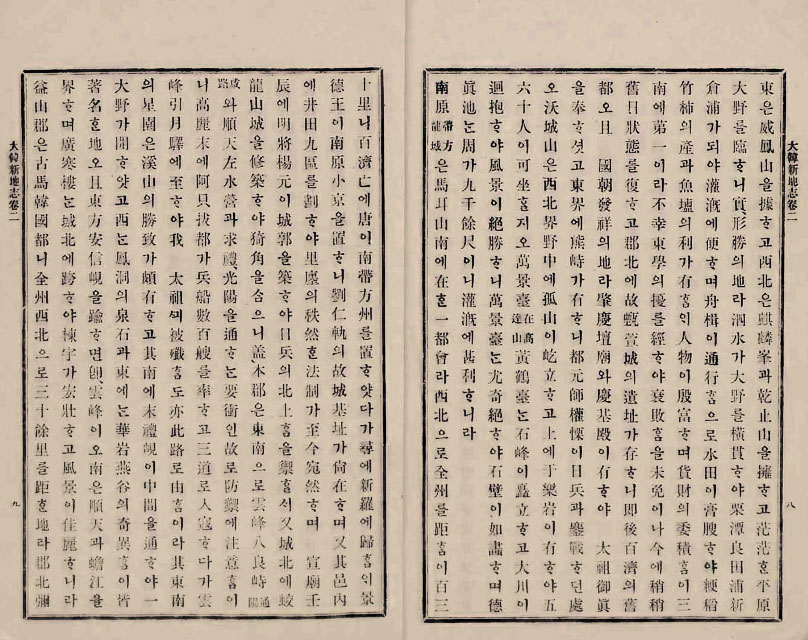 東은威鳳山을據ᄒᆞ고西北은麒麟峯과乾止山을擁ᄒᆞ고茫茫ᄒᆞᆫ平原
大野를臨ᄒᆞ니實,形勝의地라泗水가大野를橫貫ᄒᆞ야栗潭良田浦新
倉浦가되야灌漑에便ᄒᆞ며舟楫이通行ᄒᆞᆷ으로水田이膏腴ᄒᆞ야粳稻
竹柿의産과魚鹽의利가有ᄒᆞᆷ인人物이殷富ᄒᆞ며貨財의委積ᄒᆞᆷ이三
南에第一이라不幸東學의擾를經ᄒᆞ야衰敗ᄒᆞᆷ을未免이나今에稍稍
舊日狀態를復ᄒᆞ고郡北에故甄萱城의遺址가存ᄒᆞ니即後百濟의舊
都오且 國朝發祥의地라肇慶壇廟와慶基殿이有ᄒᆞ야 太祖御眞
을奉ᄒᆞ셧고東界에熊峙가有ᄒᆞ니都元師權慄이日兵과鏖戰ᄒᆞ던處
오沃城山은西北界野中에孤山이屹立ᄒᆞ고上에于樂岩이有ᄒᆞ야五
六十人이可坐ᄒᆞᆯ지오萬景臺在高達山黃鶴臺는石峰이矗立ᄒᆞ고大川이
迴抱ᄒᆞ야風景이絶勝ᄒᆞ니萬景臺는尤奇絶ᄒᆞ야石壁이如畵ᄒᆞ며德
眞池는周가九千餘尺이니灌漑에甚利ᄒᆞ니라
南原帶方龍城은馬耳山南에在ᄒᆞᆫ一都會라西北으로全州를距ᄒᆞᆷ이百三
大韓新地志卷二
八
十里니百濟亡에唐이南帶方州를置ᄒᆞ얏다가尋에新羅에歸ᄒᆞᆷ인景
德王이南原小京을置ᄒᆞ니劉仁軌의故城基址가尙在ᄒᆞ며又其邑內
에井田九區를劃ᄒᆞ야里廛의秩然ᄒᆞᆫ法制가至今宛然ᄒᆞ며 宣廟壬
辰에明將楊元이城郭을築ᄒᆞ야日兵의北上ᄒᆞᆷ을禦ᄒᆞᆯ새又城北에蛟
龍山城을修築ᄒᆞ야猗角을合으니盖本郡은東南으로雲峰八良峙通咸陽
路와順天左水營과求禮,光陽을通ᄒᆞ는要衝인故로防禦에注意ᄒᆞᆷ이
니高麗末에阿只拔都가兵船數百艘를率ᄒᆞ고三道로入寇ᄒᆞ다가雲
峰引月驛에至ᄒᆞ야我 太祖ᄭᅴ被殲ᄒᆞᆷ도亦此路로由ᄒᆞᆷ이라其東南
의星園은溪山의勝致가頗有ᄒᆞ고其南에末禮峴이中間을通ᄒᆞ야一
大野가開ᄒᆞ얏고西는鳳洞의泉石과東에는華岩燕谷의奇異ᄒᆞᆷ이皆
著名ᄒᆞᆫ地오且東方安信峴을踰ᄒᆞ면卽,雲峰이오南은順天과蟾江을
界ᄒᆞ며廣寒樓는城北에跨ᄒᆞ야棟宇가宏壯ᄒᆞ고風景이佳麗ᄒᆞ니라
益山郡은古馬韓國都니全州西北으로三十餘里를距ᄒᆞᆫ地라郡北彌
大韓新地志卷二
九